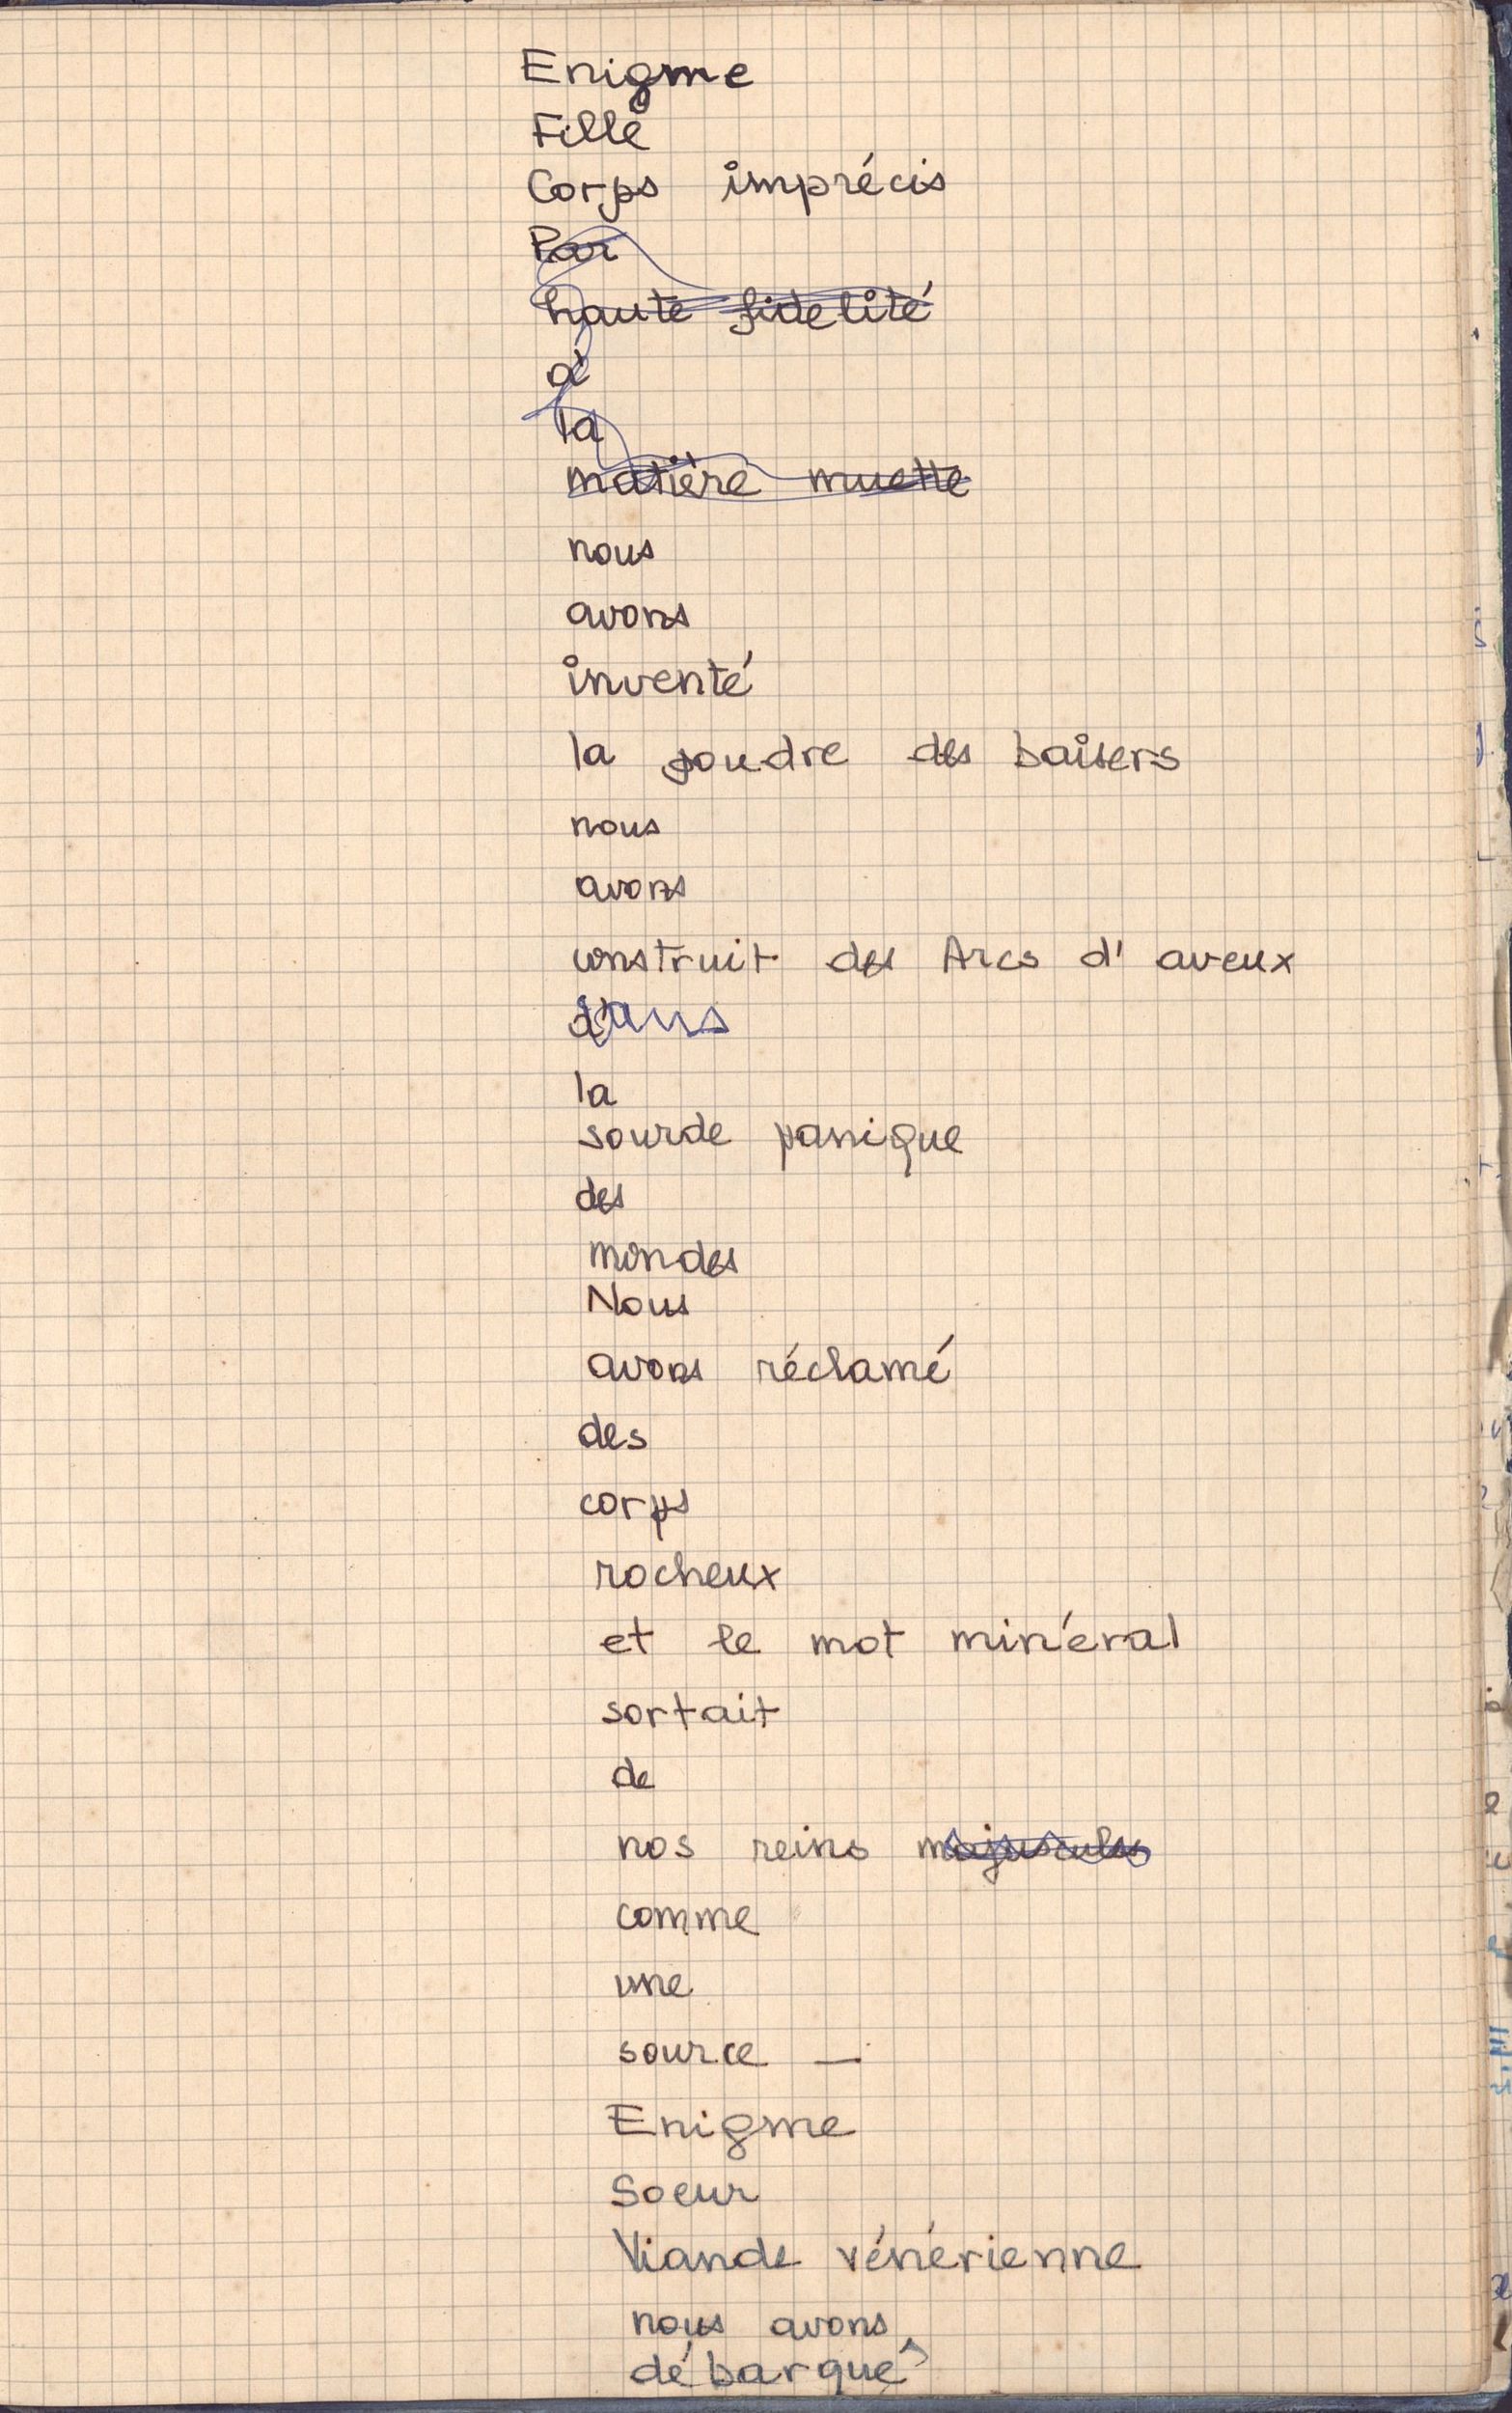 Enigme
Fille
Corps imprécis
Par
haute fidelité
à
la
matière muette
nous
avons
inventé
la poudre des baisers
nous
avons
construit des Arcs d'aveux
dans
la
sourde panique
des
mondes
Nous
avons réclamé
des
corps
rocheux
et le mot minéral
sortait
de
nos reins majuscules
comme
une
source —
Enigme
Soeur
Viande vénérienne
nous avons
débarqué